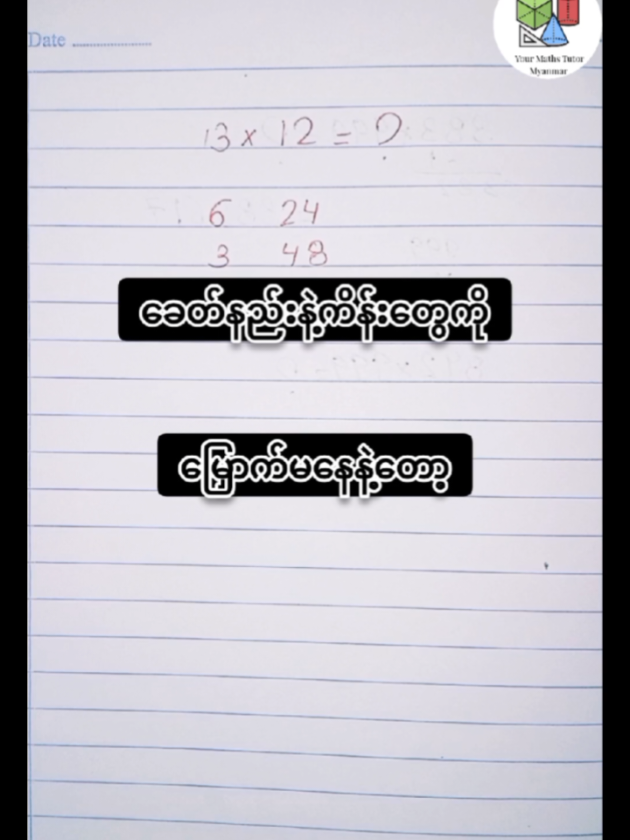 Date
Your Maths Tutor
Myanmar
13 x 12 = ?
6 24
3 48
ခေတ်နည်းနဲ့ကိန်းတွေကို
မြှောက်မနေနဲ့တော့